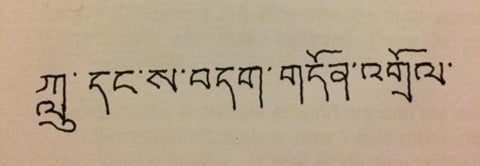 ཀླུ་ དང་ས་བདག་ གདོན་འགྲོལ་